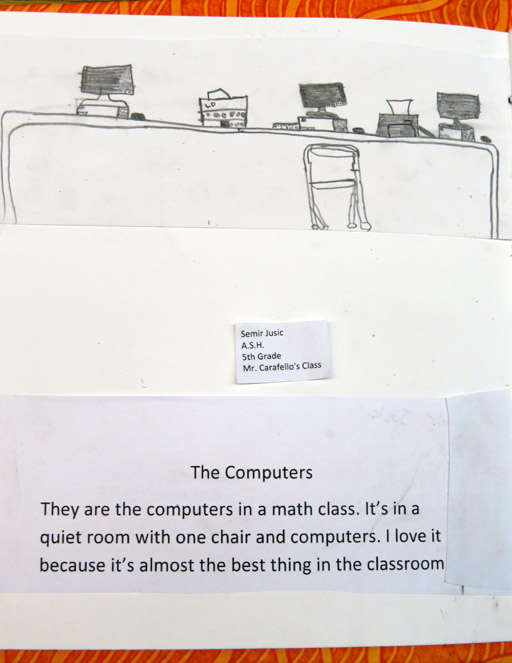 Semir Jusic
A.S.H.
5th Grade
Mr. Carafello's Class
The Computers
They are the computers in a math class. It's in a
quiet room with one chair and computers. I love it
because it's almost the best thing in the classroom